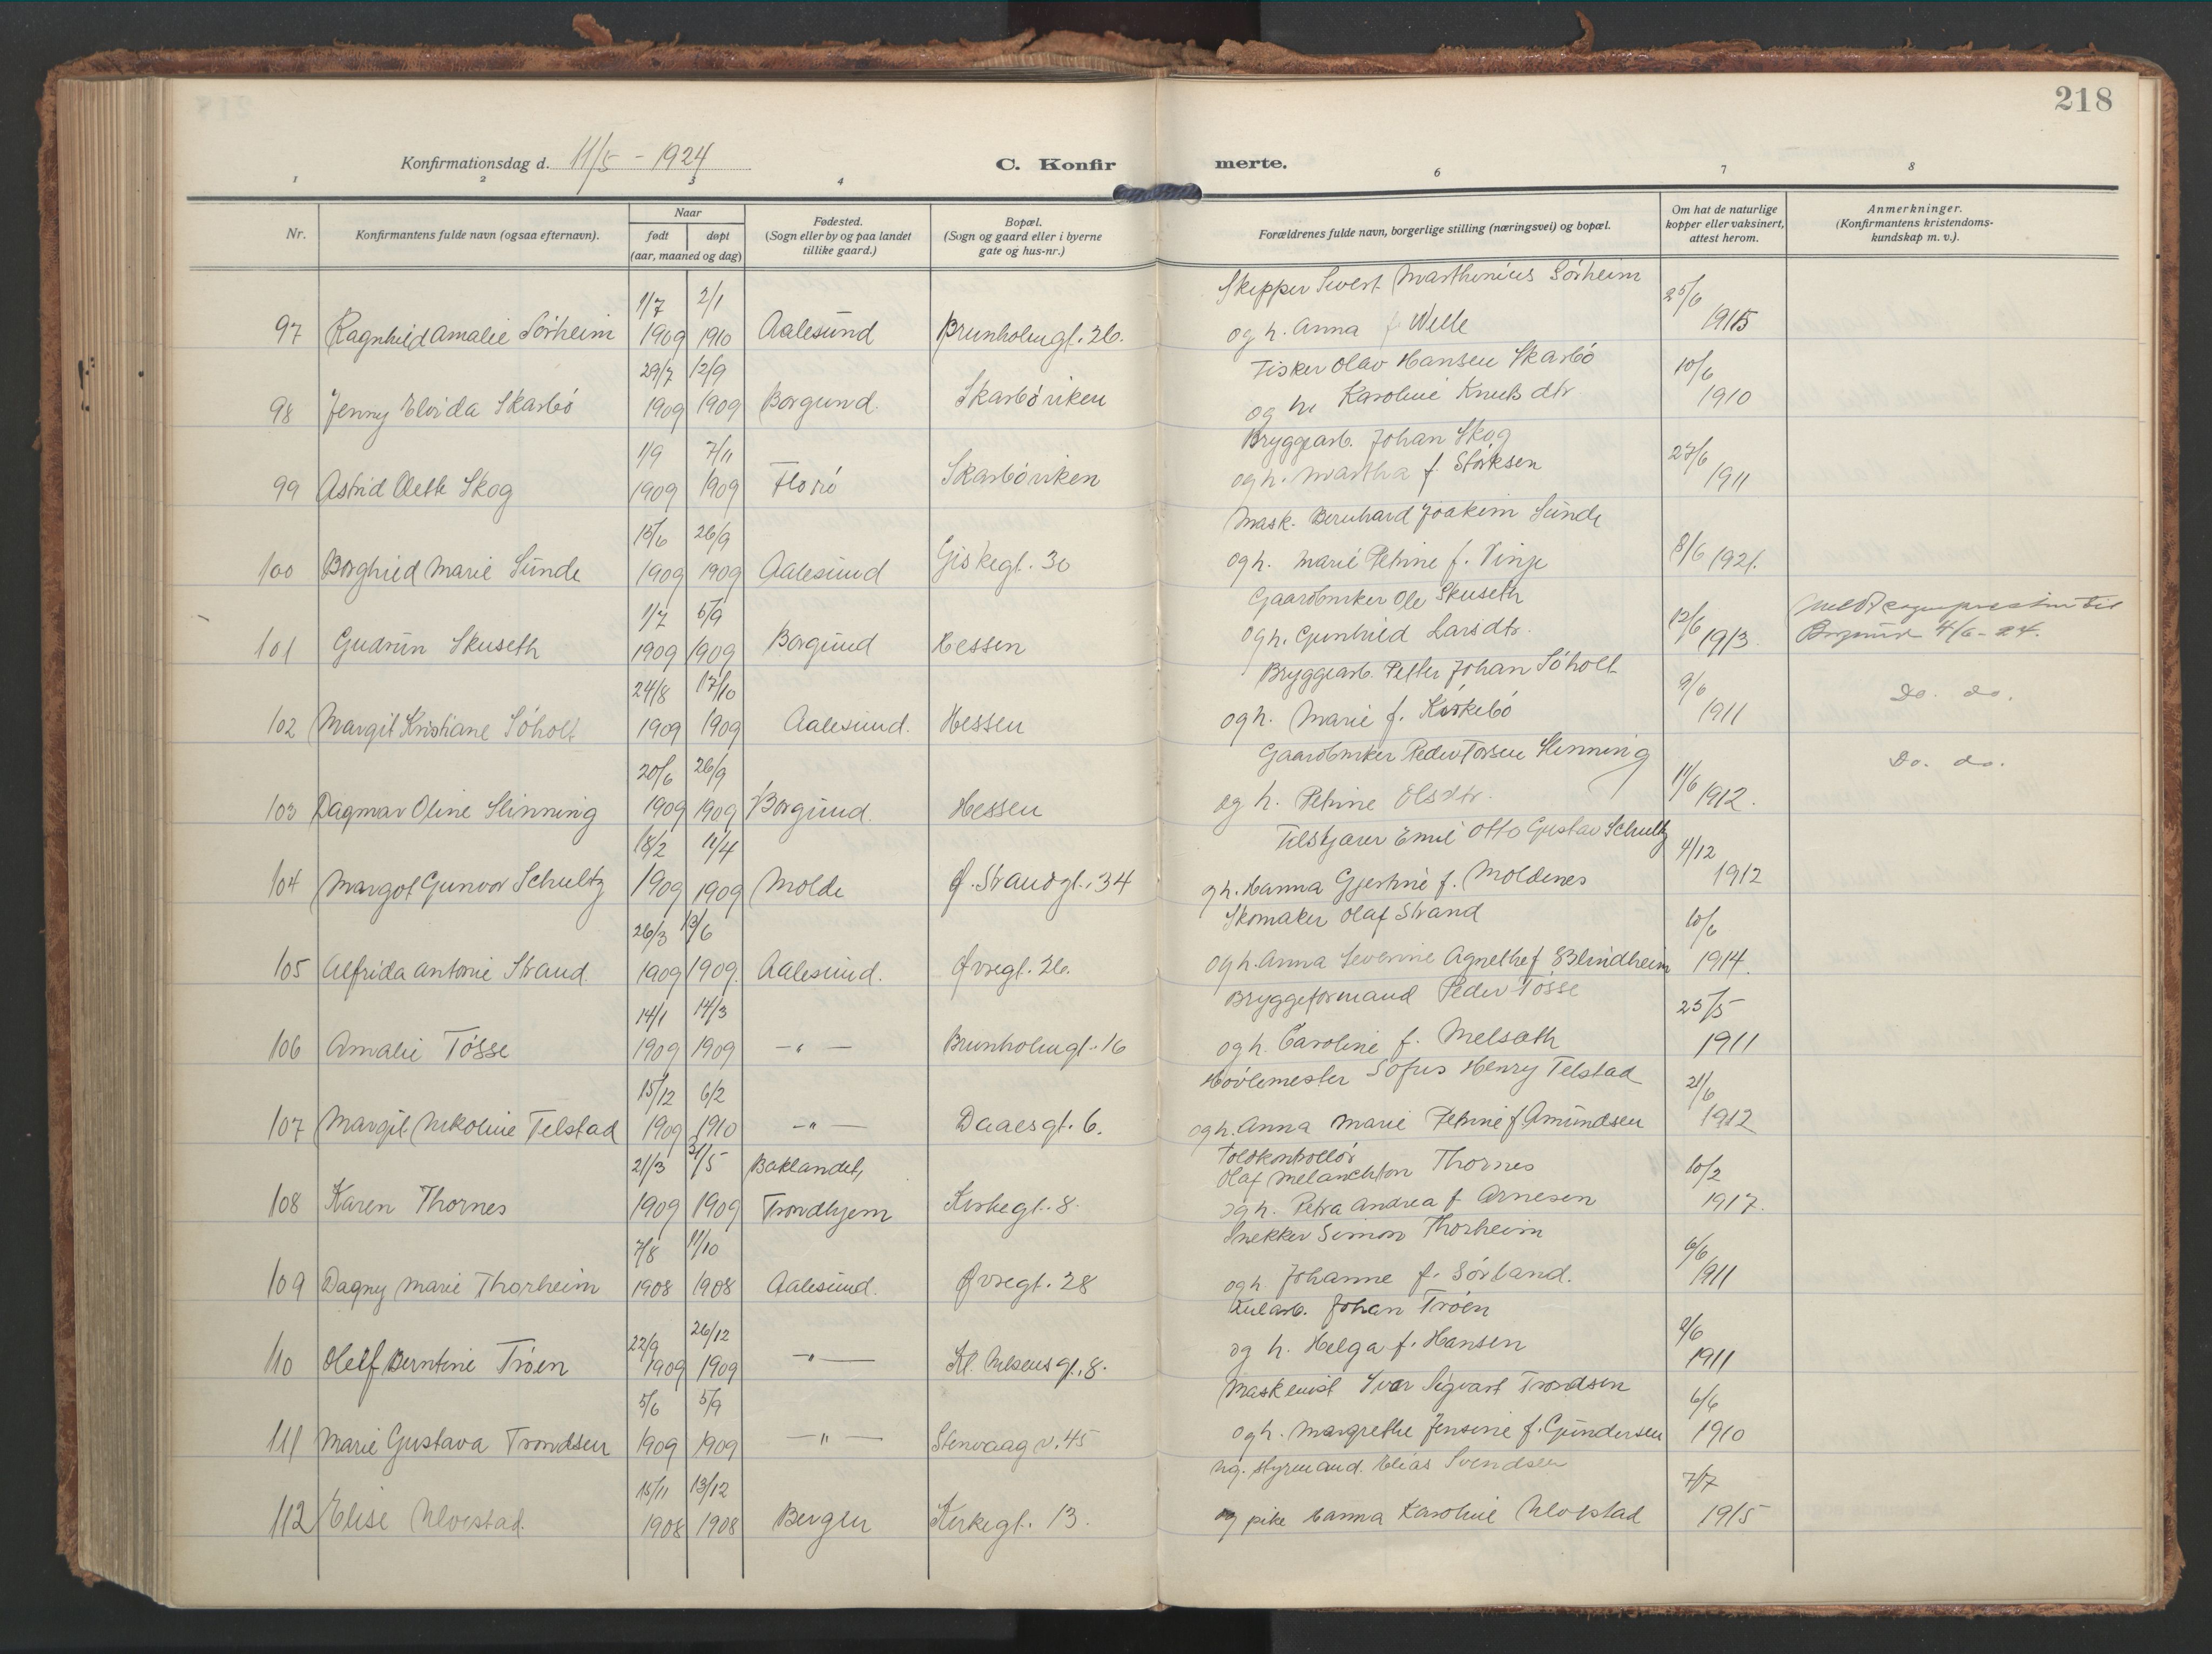 218
Konfirmationsdag d. 11/5 - 1924
C. Konfirmerte.
1 2 3 4 6 7 8
Nr.
Konfirmantens fulde navn (ogsaa efternavn).
Naar
født døpt
(aar, maaned og dag)
Fødested.
(Sogn eller by og paa landet
tillike gaard.)
Bopæl.
(Sogn og gaard eller i byerne
gate og hus-nr.)
Forældrenes fulde navn, borgerlige stilling (næringsvei) og bopæl.
Om hat de naturlige
kopper eller vaksinert,
attest herom.
Anmerkninger.
(Konfirmantens kristendoms-
kundskap m. v.).
1/7 2/1 Skipper Sivert Marthinius Sörheim 25/6
97 Ragnhild Amalie Sörheim 1909 1910 Aalesund Brunholmgt. 26. og h. Anna f Welle 1915
29/7 12/9 Fisker Olav Hansen Skarbö 10/6
98 Jenny Elvida Skarbö 1909 1909 Borgund. Skarböviken og h. Karoline Knutsdtr 1910
1/9 7/11 Bryggearb. Johan Skog 27/6
99 Astrid Olette Skog 1909 1909 Florö Skarböviken og h. Martha f Störksen 1911
15/6 26/9 Mask. Bernhard Joakim Sunde
100 Borghild Marie Sunde 1909 1909 Aalesund Giskegt. 30 og h. Marie Petrine f. Vinje 8/6 1921.
1/7 5/9 Gaardbruker Ole Skuseth 12/6 Meldt sognepresten til
101 Gudrun Skuseth 1909 1909 Borgund Hessen og h. Gunhild Larsdtr. 1913. Borgund 4/6-24.
24/8 17/10 Bryggearb. Petter Johan Söholt 9/6 Do. do.
102 Margit Kristiane Söholt 1909 1909 Aalesund. Hessen og h. Marie f. Kirkebö 1911
20/6 26/9 Gaardbruker Peder Torsen Slinning Do. do.
103 Dagmar Oline Slinning 1909 1909 Borgund. Hessen og h. Petrine Olsdtr. 11/6 1912.
18/2 11/4 Filskjærer Emil Otto Gustav Schultz 4/12
104 Margot Gunvor Schultz 1909 1909 Molde Ø. Strandgt. 34 og h. Hanna Gjertine f. Moldenes 1912
26/3 13/6 Skomaker Olaf Strand 10/6
105 Alfrida Antonie Strand 1909 1909. Aalesund. Øvregt. 26. og h. Anna Severine Agnethe f Blindheim 1914.
14/1 14/3 Bryggeformand Peder Tösse 25/5
106 Amalie Tösse 1909 1909 -„- Brunholmgt. 16 og h. Caroline f. Melsæth 1911
15/12 6/2 Hövlemester Sofus Henry Telstad 21/6
107 Margit Nikoline Telstad 1909 1910 -„- Daaesgt. 6. og h. Anna Marie Petrine f. Amundsen 1912
21/3 31/5 Baklandet, Toldkontrollör
Olaf Melanchton Thornes 10/2
108 Karen Thornes 1909 1909 Trondhjem Kirkegt. 8. og h. Petra Andrea f Arnesen 1917.
7/8 11/10 Snekker Simon Thorheim 6/6
109 Dagny Marie Thorheim 1908 1908 Aalesund. Øvregt. 28 og h. Johanne f. Sörland. 1911
22/9 26/12 Kularb. Johan Tröen 9/6
110 Oleif Berntine Tröen 1909 1909 -„- Kl. Nilsens gt. 8. og h. Helga f. Hansen 1911
5/6 5/9 Maskinist Ivar Sigvart Trondsen 6/6
111 Marie Gustava Trondsen 1909 1909 -„- Stenvaag v. 45 og h. Margrethe Jensine f. Gundersen 1910
15/11 13/12 ug. styrmand. Elias Svendsen 7/7
112 Elise Ulvestad. 1908 1908 Bergen Kirkegt. 13. og pike Hanna Karoline Ulvestad 1915